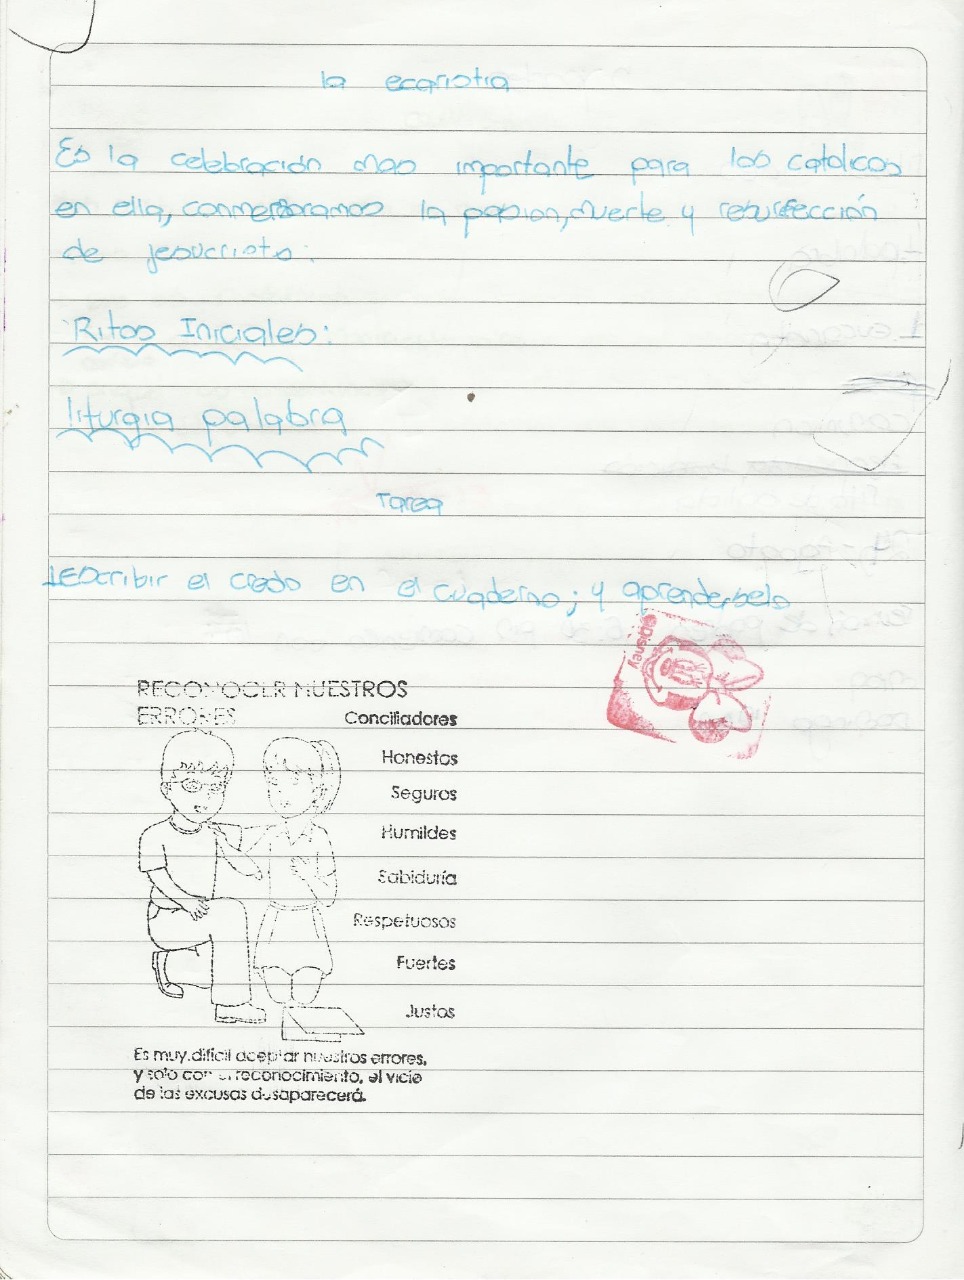 la ecaristia
Es la celebración mas importante para los catolicos
en ella, conmemoramos la pasion, muerte y resurrección
de jesucristo.
Ritos Iniciales:
liturgia palabra
Tarea
1 Escribir el credo en el cuaderno; y aprenderselo
©Disney
RECONOCER NUESTROS
ERRORES
Conciliadores
Honestos
Seguros
Humildes
Sabiduría
Respetuosos
Fuertes
Justos
Es muy difícil aceptar nuestros errores,
y solo con el reconocimiento, el vicio
de las excusas desaparecerá.